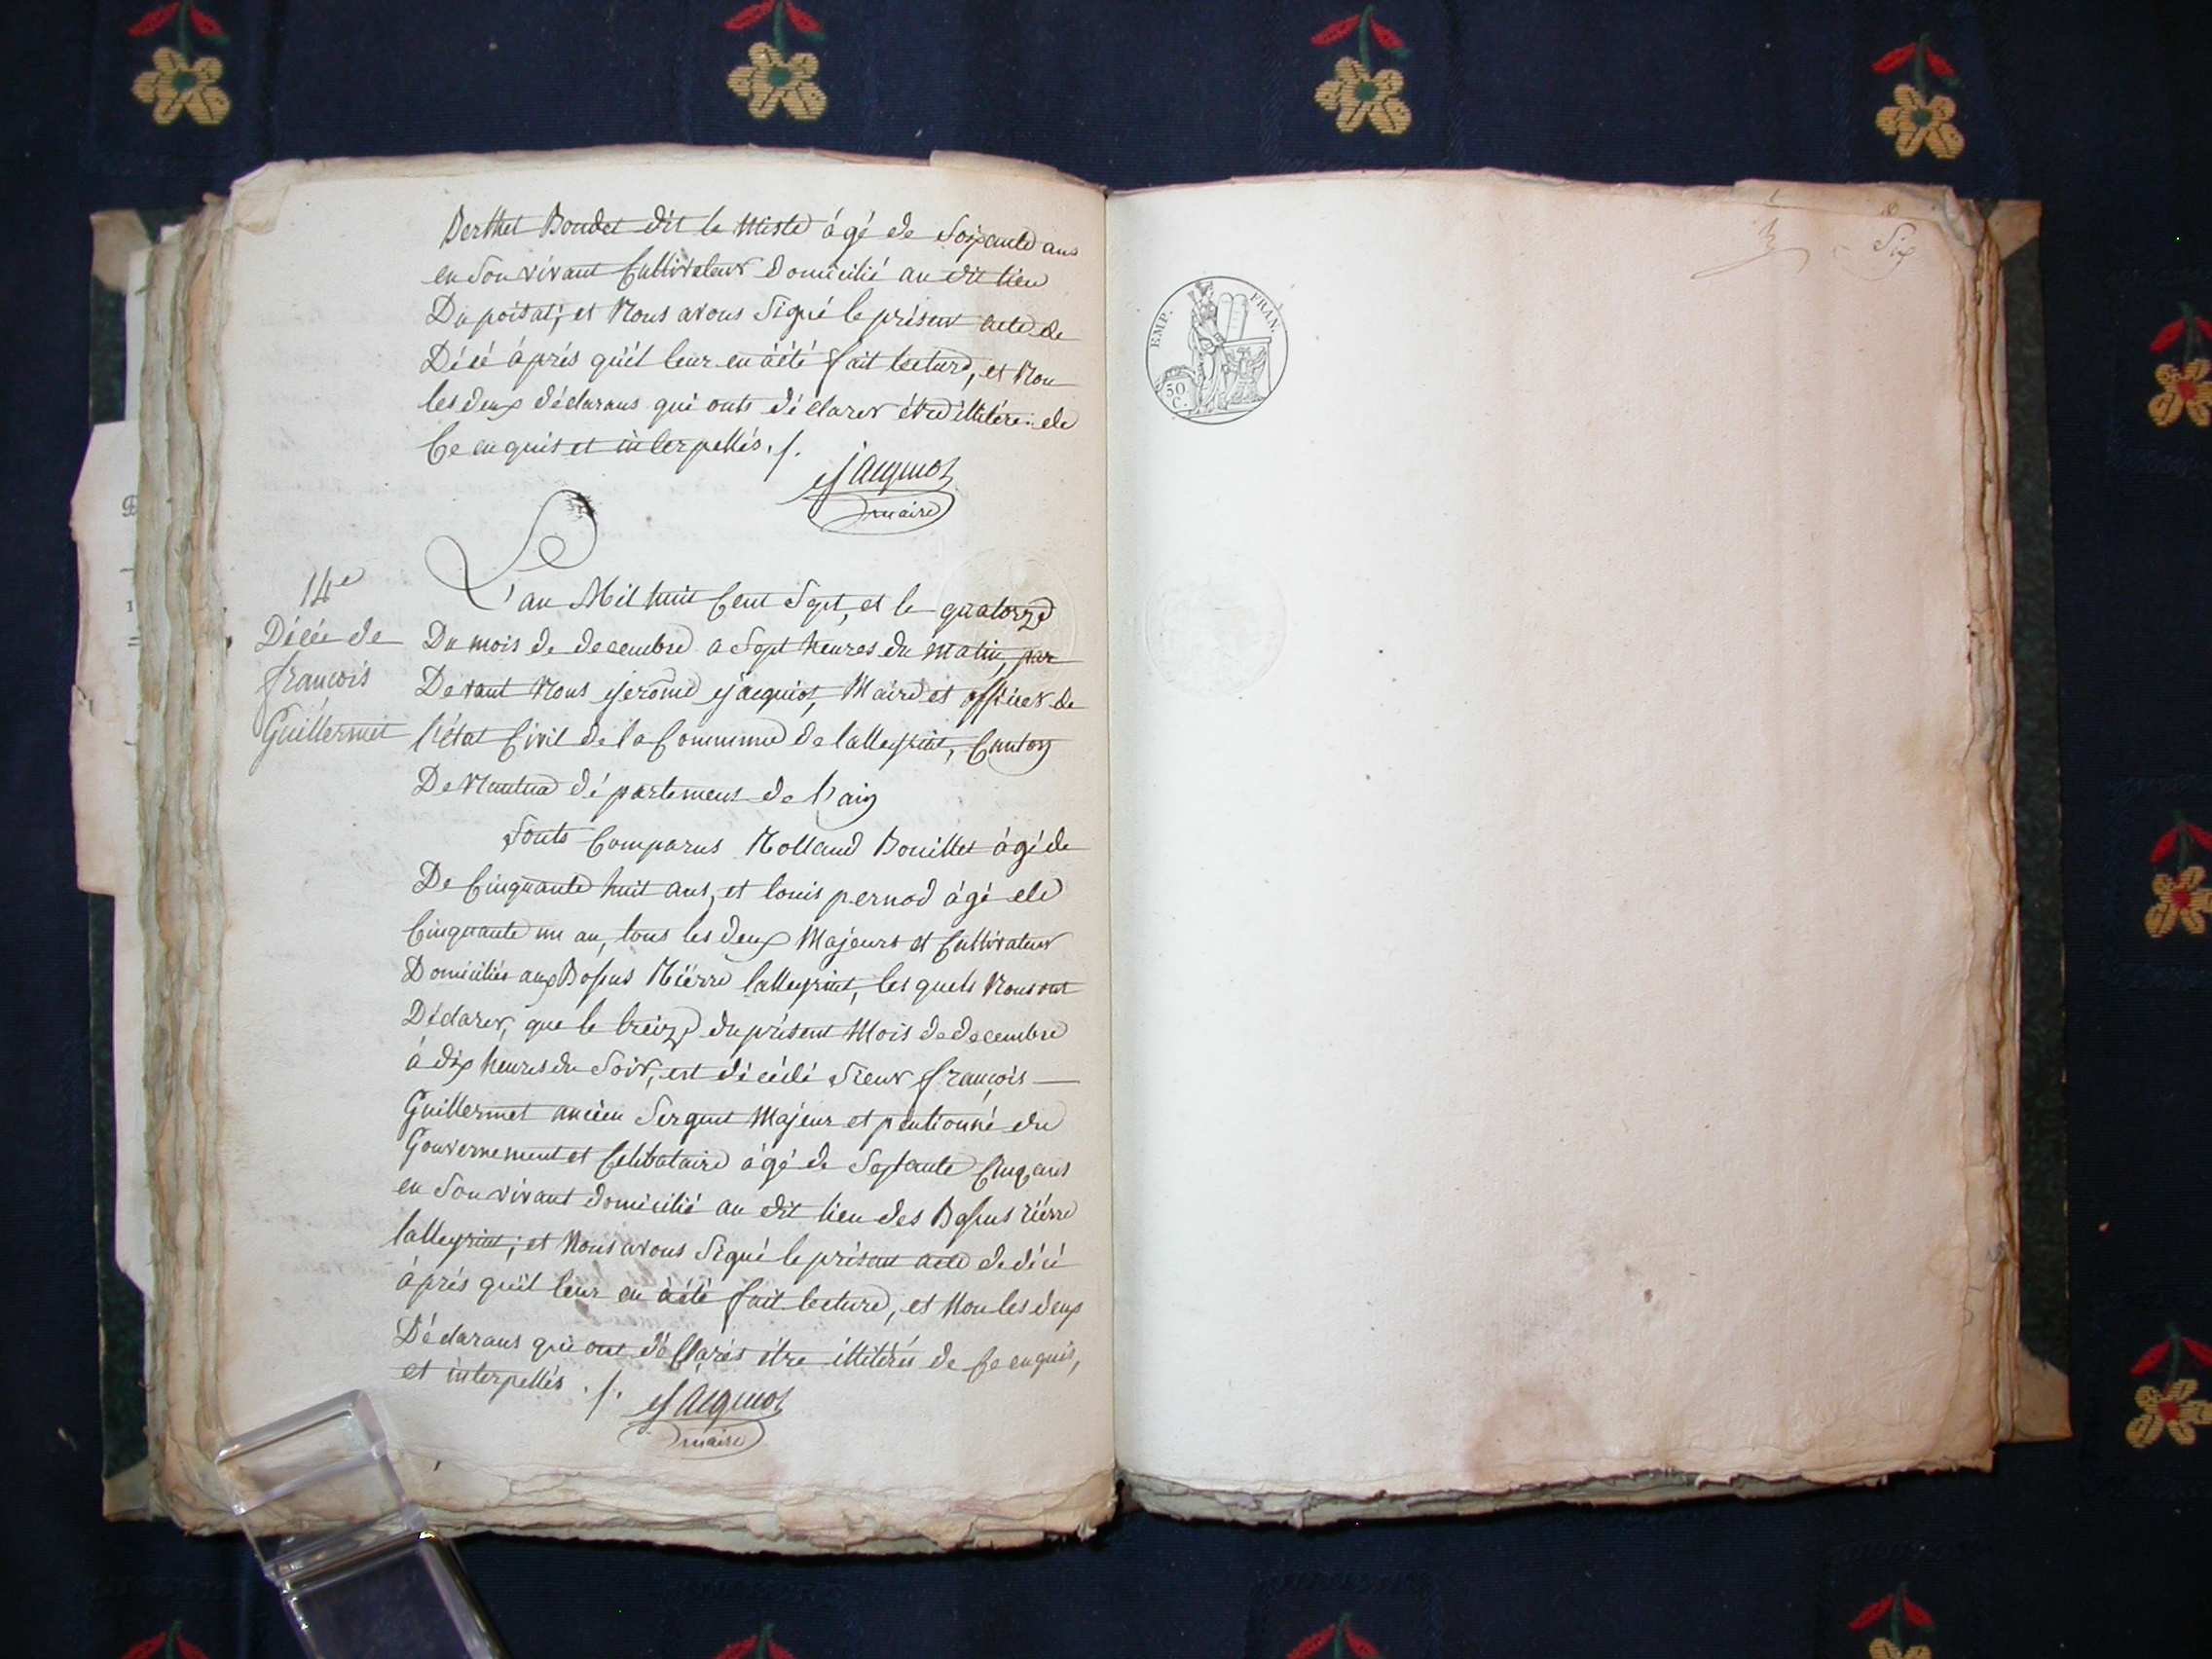 Berthet Boudet dit le Miste âgé de Soixante ans
en Son vivant Cultivateur Domicilié au dit lieu
Du poisat; et Nous avons Signé le présent acte de
Décé àprés quil leur en àété fait lecture, et Non
les deux déclarans qui onts déclarer être illitéré de
Ce enquis et interpellés ./.
Jacquiot
maire
14e
Décée de
françois
Guillermet
L'an Mil huit Cent Sept, et le quatorze
Du mois de decembre a Sept heures du matin, par
Devant Nous jerome jacquiot, Maire et officier de
l'état Civil de la Commune de lalleyriat, Canton
De Nantua département de l'ain
Sonts Comparus Rolland Bouillet âgé de
De Cinquante huit ans, et louis pernod âgé de
Cinquante un an, tous les deux Majeurs et Cultivateur
Domiciliés aux Bossus Riérre lalleyriat, les quels Nous ont
Déclarer, que le treize du présent Mois de decembre
à dix heures du Soir, est décédé Sieur françois
Guillermet ancien Sergent Majeur et pentionné du
Gouvernement et Celibataire âgé de Septante Cinq ans
en Son vivant domicilié au dit lieu des Bossus riérre
lalleyriat; et Nous avons Signé le présent acte de décé
àprés quil leur en àété fait lecture, et Non les deux
Déclarans qui ont déClarés être illitérés de Ce enquis,
et interpellés ./.
Jacquiot
maire
Six
EMP. FRAN.
50
C.